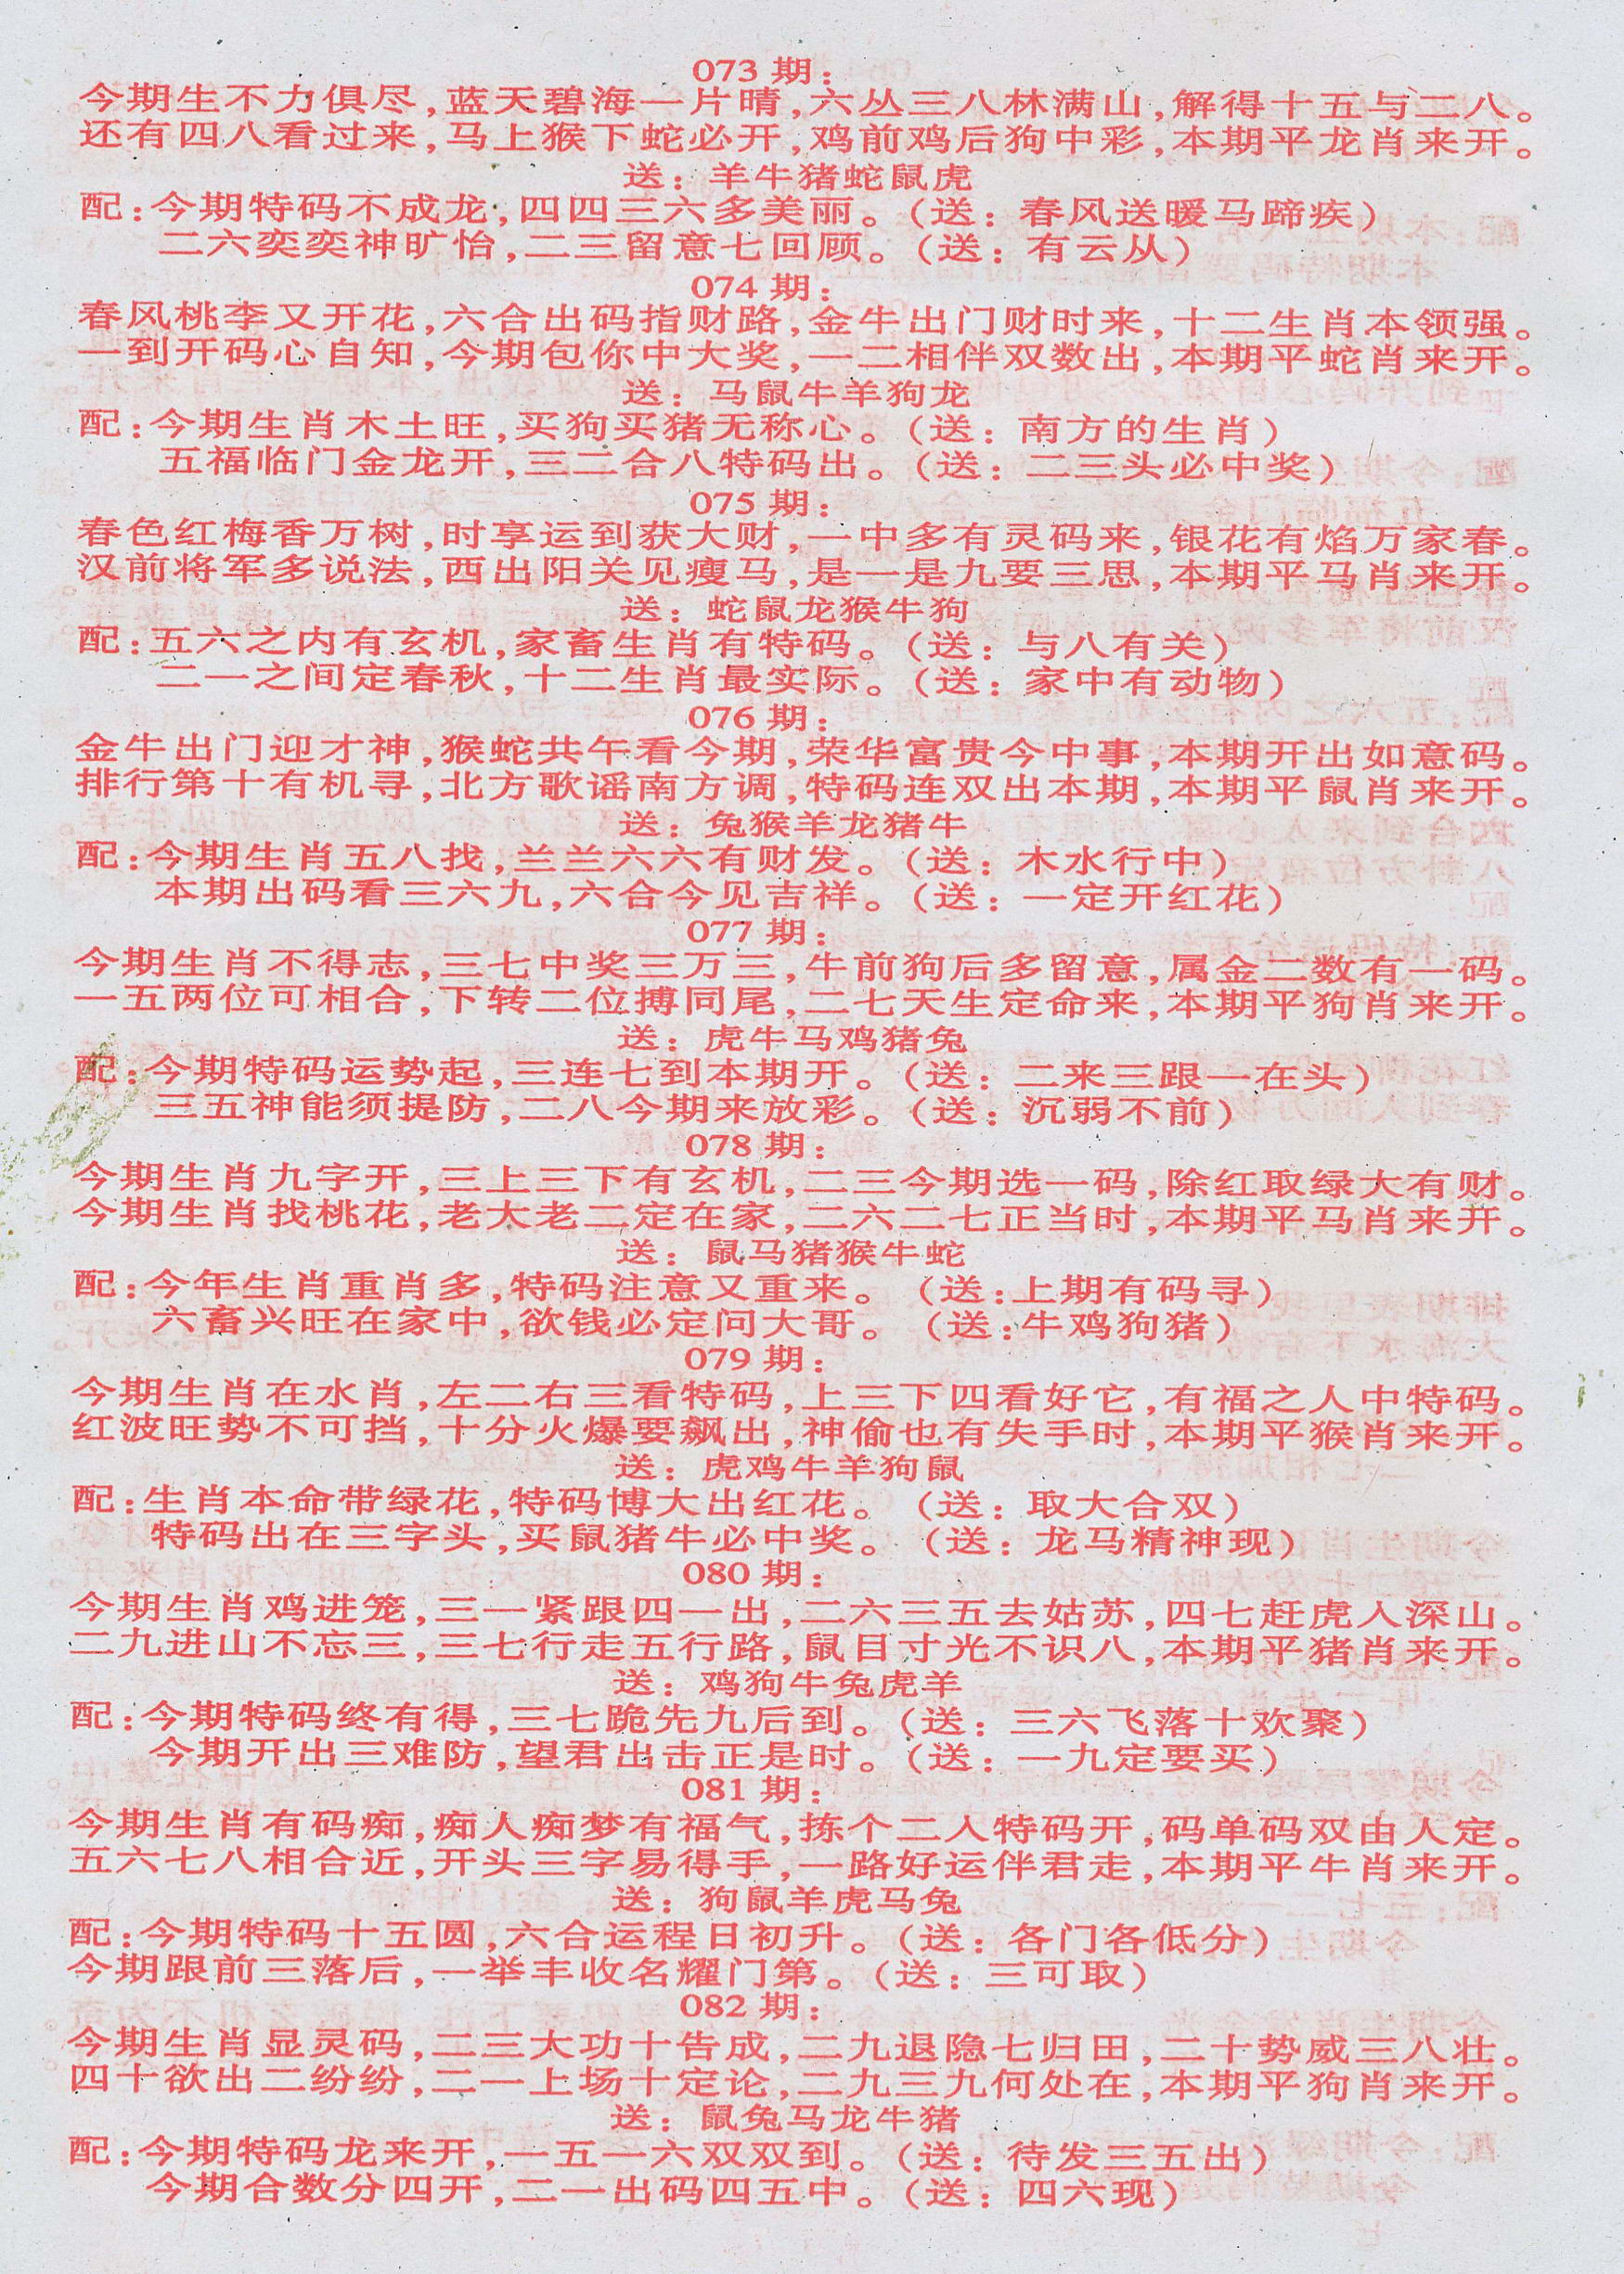 073 期：
今期生不力俱尽,蓝天碧海一片晴,六丛三八林满山,解得十五与二八。
还有四八看过来,马上猴下蛇必开,鸡前鸡后狗中彩,本期平龙肖来开。
送：羊牛猪蛇鼠虎
配:今期特码不成龙,四四三六多美丽。(送：春风送暖马蹄疾)
二六奕奕神旷怡,二三留意七回顾。(送：有云从)
074 期：
春风桃李又开花,六合出码指财路,金牛出门财时来,十二生肖本领强。
一到开码心自知,今期包你中大奖,一二相伴双数出,本期平蛇肖来开。
送：马鼠牛羊狗龙
配:今期生肖木土旺,买狗买猪无称心。(送：南方的生肖)
五福临门金龙开,三二合八特码出。(送：二三头必中奖)
075 期：
春色红梅香万树,时享运到获大财,一中多有灵码来,银花有焰万家春。
汉前将军多说法,西出阳关见瘦马,是一是九要三思,本期平马肖来开。
送：蛇鼠龙猴牛狗
配:五六之内有玄机,家畜生肖有特码。(送：与八有关)
二一之间定春秋,十二生肖最实际。(送：家中有动物)
076 期：
金牛出门迎才神,猴蛇共午看今期,荣华富贵今中事,本期开出如意码。
排行第十有机寻,北方歌谣南方调,特码连双出本期,本期平鼠肖来开。
送：兔猴羊龙猪牛
配:今期生肖五八找,兰兰六六有财发。(送：木水行中)
本期出码看三六九,六合今见吉祥。(送：一定开红花)
077 期：
今期生肖不得志,三七中奖三万三,牛前狗后多留意,属金二数有一码。
一五两位可相合,下转二位搏同尾,二七天生定命来,本期平狗肖来开。
送：虎牛马鸡猪兔
配:今期特码运势起,三连七到本期开。(送：二来三跟一在头)
三五神能须提防,二八今期来放彩。(送：沉弱不前)
078 期：
今期生肖九字开,三上三下有玄机,二三今期选一码,除红取绿大有财。
今期生肖找桃花,老大老二定在家,二六二七正当时,本期平马肖来开。
送：鼠马猪猴牛蛇
配:今年生肖重肖多,特码注意又重来。(送:上期有码寻)
六畜兴旺在家中,欲钱必定问大哥。(送:牛鸡狗猪)
079 期：
今期生肖在水肖,左二右三看特码,上三下四看好它,有福之人中特码。
红波旺势不可挡,十分火爆要飙出,神偷也有失手时,本期平猴肖来开。
送：虎鸡牛羊狗鼠
配:生肖本命带绿花,特码博大出红花。(送：取大合双)
特码出在三字头,买鼠猪牛必中奖。(送：龙马精神现)
080 期：
今期生肖鸡进笼,三一紧跟四一出,二六三五去姑苏,四七赶虎入深山。
二九进山不忘三,三七行走五行路,鼠目寸光不识八,本期平猪肖来开。
送：鸡狗牛兔虎羊
配:今期特码终有得,三七跪先九后到。(送：三六飞落十欢聚)
今期开出三难防,望君出击正是时。(送：一九定要买)
081 期：
今期生肖有码痴,痴人痴梦有福气,拣个二人特码开,码单码双由人定。
五六七八相合近,开头三字易得手,一路好运伴君走,本期平牛肖来开。
送：狗鼠羊虎马兔
配:今期特码十五圆,六合运程日初升。(送：各门各低分)
今期跟前三落后,一举丰收名耀门第。(送：三可取)
082 期：
今期生肖显灵码,二三大功十告成,二九退隐七归田,二十势威三八壮。
四十欲出二纷纷,二一上场十定论,二九三九何处在,本期平狗肖来开。
送：鼠兔马龙牛猪
配:今期特码龙来开,一五一六双双到。(送：待发三五出)
今期合数分四开,二一出码四五中。(送：四六现)